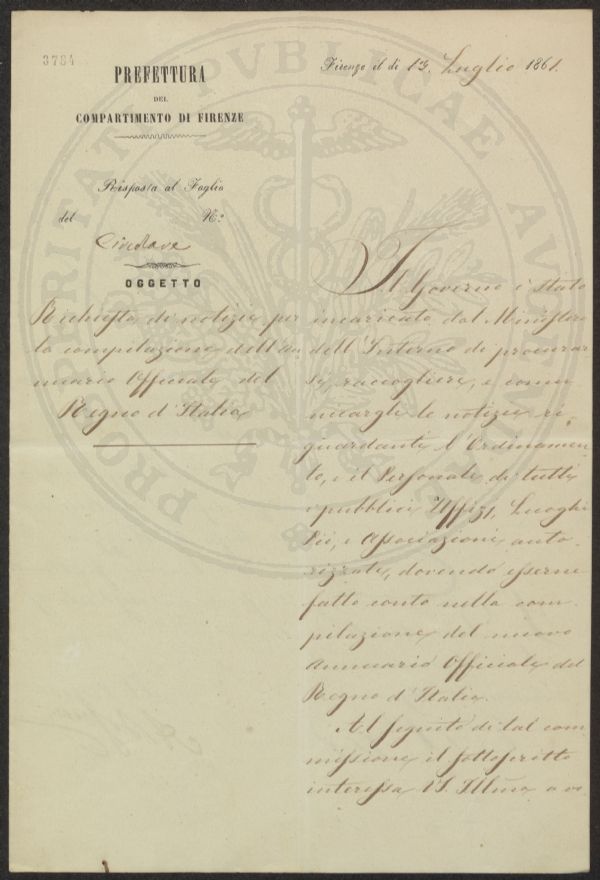 3784
PREFETTURA
DEL
COMPARTIMENTO DI FIRENZE
Risposta al Foglio
del Nº
Circolare
OGGETTO
Richiesta di notizie per
la compilazione dell'An
nuario Officiale del
Regno d'Italia
Firenze il dì 13. Luglio 1861.
Il Governo è stato
incaricato dal Ministero
dell'Interno di procurar
si, raccogliere, e comu
nicargli le notizie ri
guardanti l'Ordinamen
to, e il Personale di tutti
i pubblici Uffizj, Luoghi
Pii, e Associazioni auto
rizzate, dovendo esserne
fatto conto nella com
pilazione del nuovo
Annuario Officiale del
Regno d'Italia.
Al seguito di tal com
missione il sottoscritto
interessa VS. Illma a vo
PROSPERITATI PUBLICAE AUGENDAE